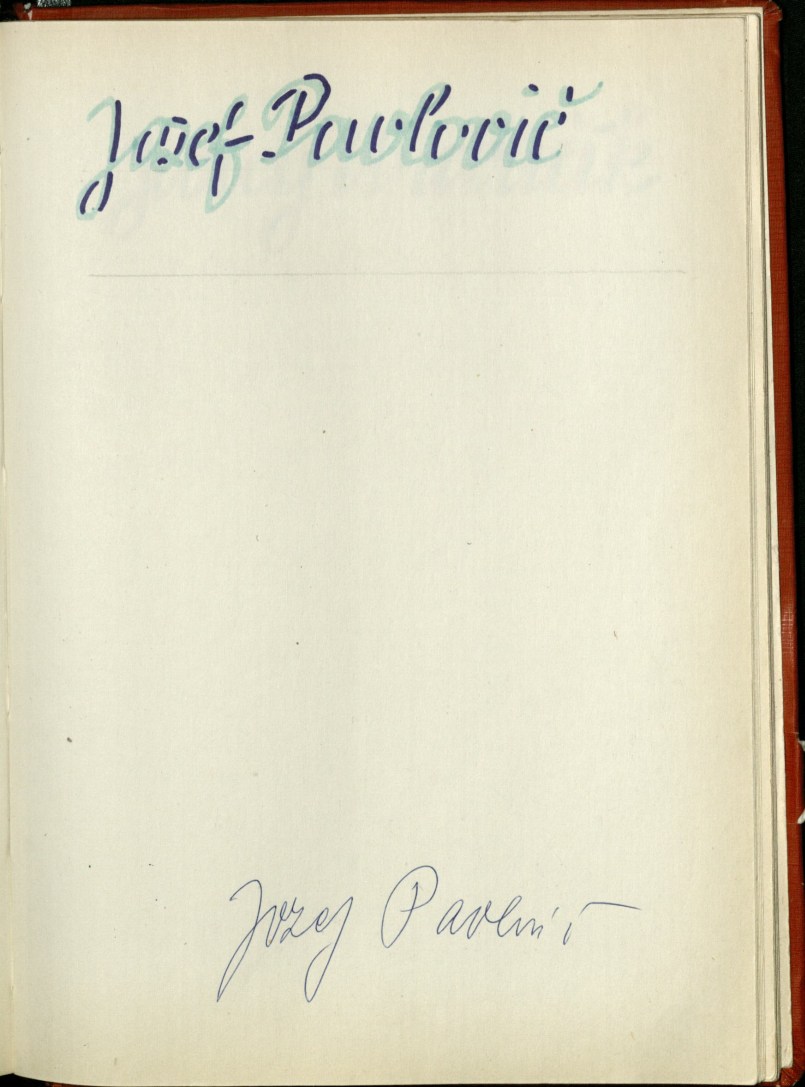 Jozef Pavlovič
Jozef Pavlovič